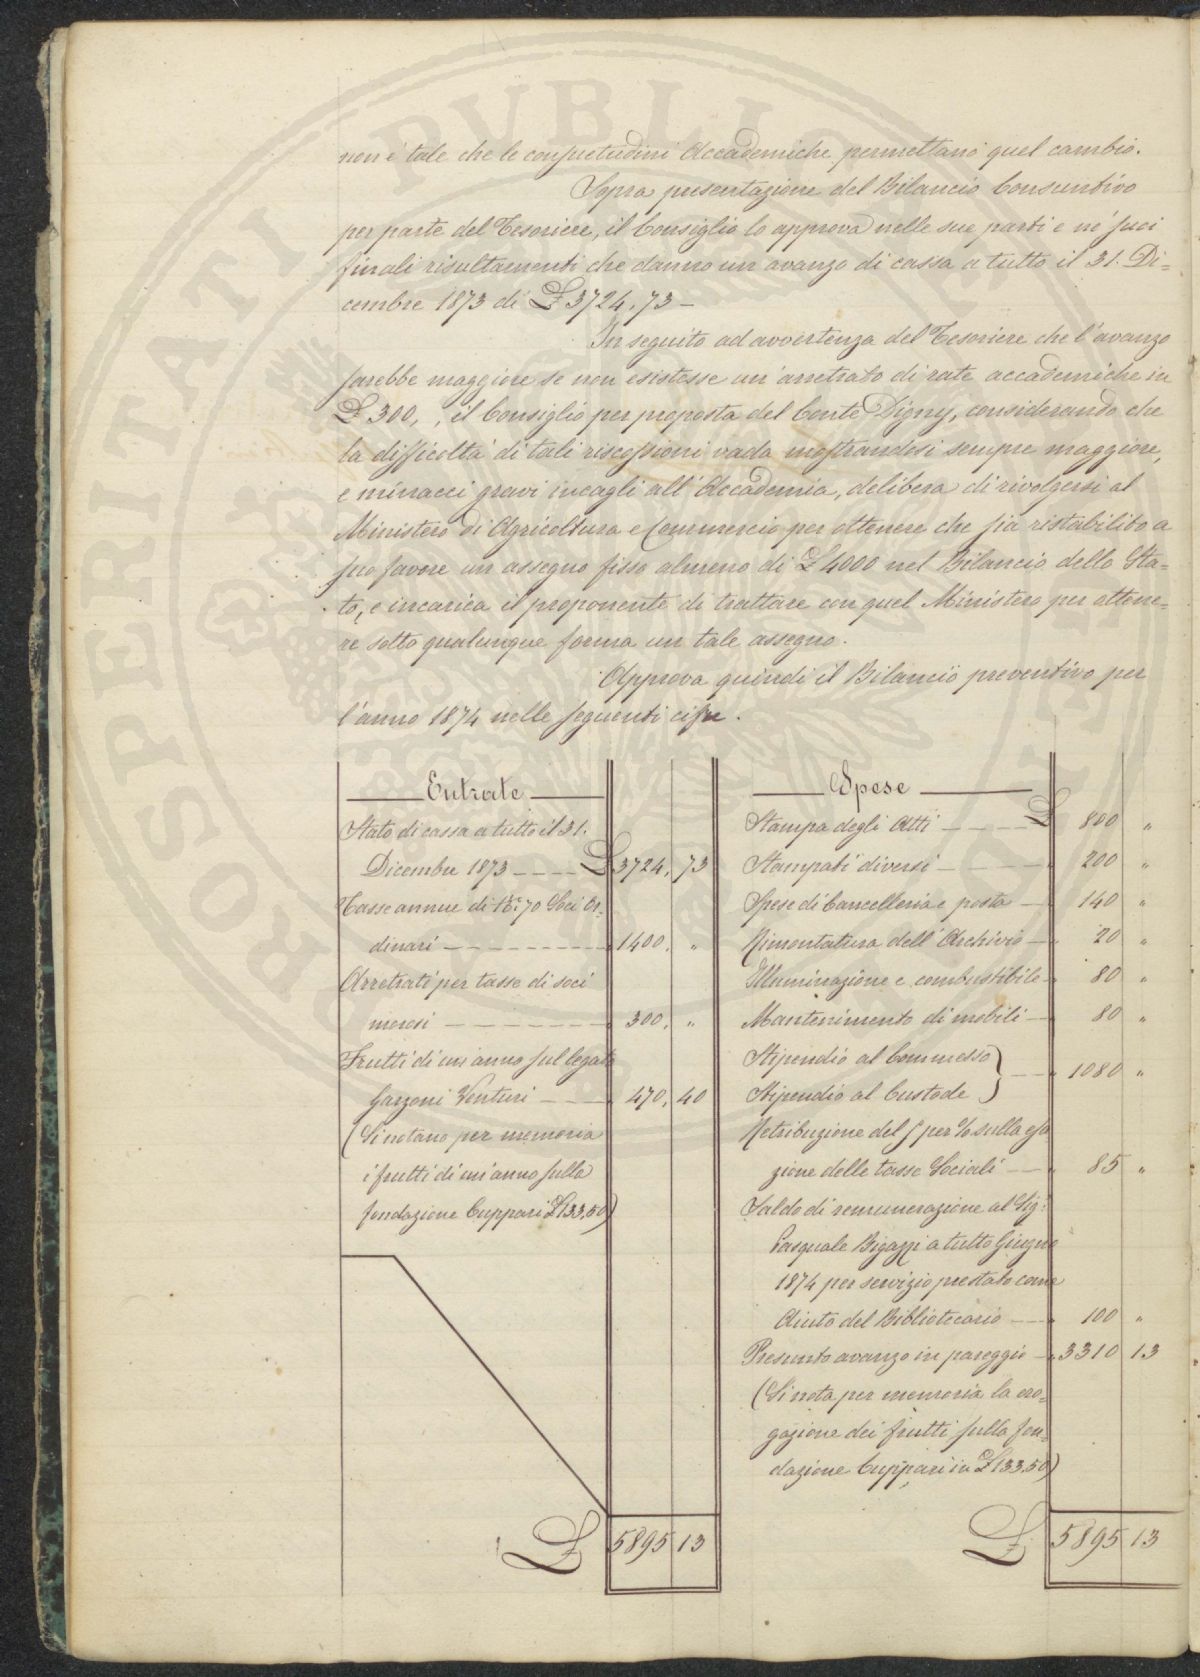 non è tale che le consuetudini Accademiche permettano quel cambio.
Sopra presentazione del Bilancio Consuntivo
per parte del Tesoriere, il Consiglio lo approva nelle sue parti e ne' suoi
finali risultamenti che danno un avanzo di cassa a tutto il 31. Di=
cembre 1873 di £ 3724,73 –
In seguito ad avvertenza del Tesoriere che l'avanzo
sarebbe maggiore se non esistesse un'arretrato di rate accademiche in
£ 300, , il Consiglio per proposta del Conte Digny, considerando che
la difficoltà di tali riscossioni vada mostrandosi sempre maggiore,
e minacci gravi incagli all'Accademia, delibera di rivolgersi al
Ministero di Agricoltura e Commercio per ottenere che sia ristabilito a
suo favore un assegno fisso almeno di £ 4000 nel Bilancio dello Sta=
to, e incarica il proponente di trattare con quel Ministero per ottene=
re sotto qualunque forma un tale assegno.
Approva quindi il Bilancio preventivo per
l'anno 1874 nelle seguenti cifre.
Entrate
Stato di cassa a tutto il 31.
Dicembre 1873 — — — £ 3724, 73
Tasse annue di N.° 70 Soci Or-
dinari — — — — 1400, "
Arretrati per tasse di soci
morosi — — — — 300, "
Frutti di un anno sul legato
Garzoni Venturi — — — 470, 40
(Si notano per memoria
i frutti di un'anno sulla
fondazione Cuppari £ 133,50)
£ 5895 13
Spese
Stampa degli Atti — — — £ 800 "
Stampati diversi — — — " 200 "
Spese di Cancelleria e posta — " 140 "
Rimontatura dell'Archivio — " 20 "
Illuminazione e combustibile — " 80 "
Mantenimento di mobili — " 80 "
Stipendio al Commesso
Stipendio al Custode } — " 1080 "
Retribuzione del 5 per % sulla esa
zione delle tasse Sociali — " 85 "
Saldo di remunerazione al Sig:
Pasquale Bigazzi a tutto Giugno
1874 per servizio prestato come
Aiuto del Bibliotecario — " 100 "
Presunto avanzo in pareggio — " 3310 13
(Si nota per memoria la ero-
gazione dei frutti sulla fon-
dazione Cuppari in £ 133,50)
£ 5895 13
PROSPERITATI PUBLICAE